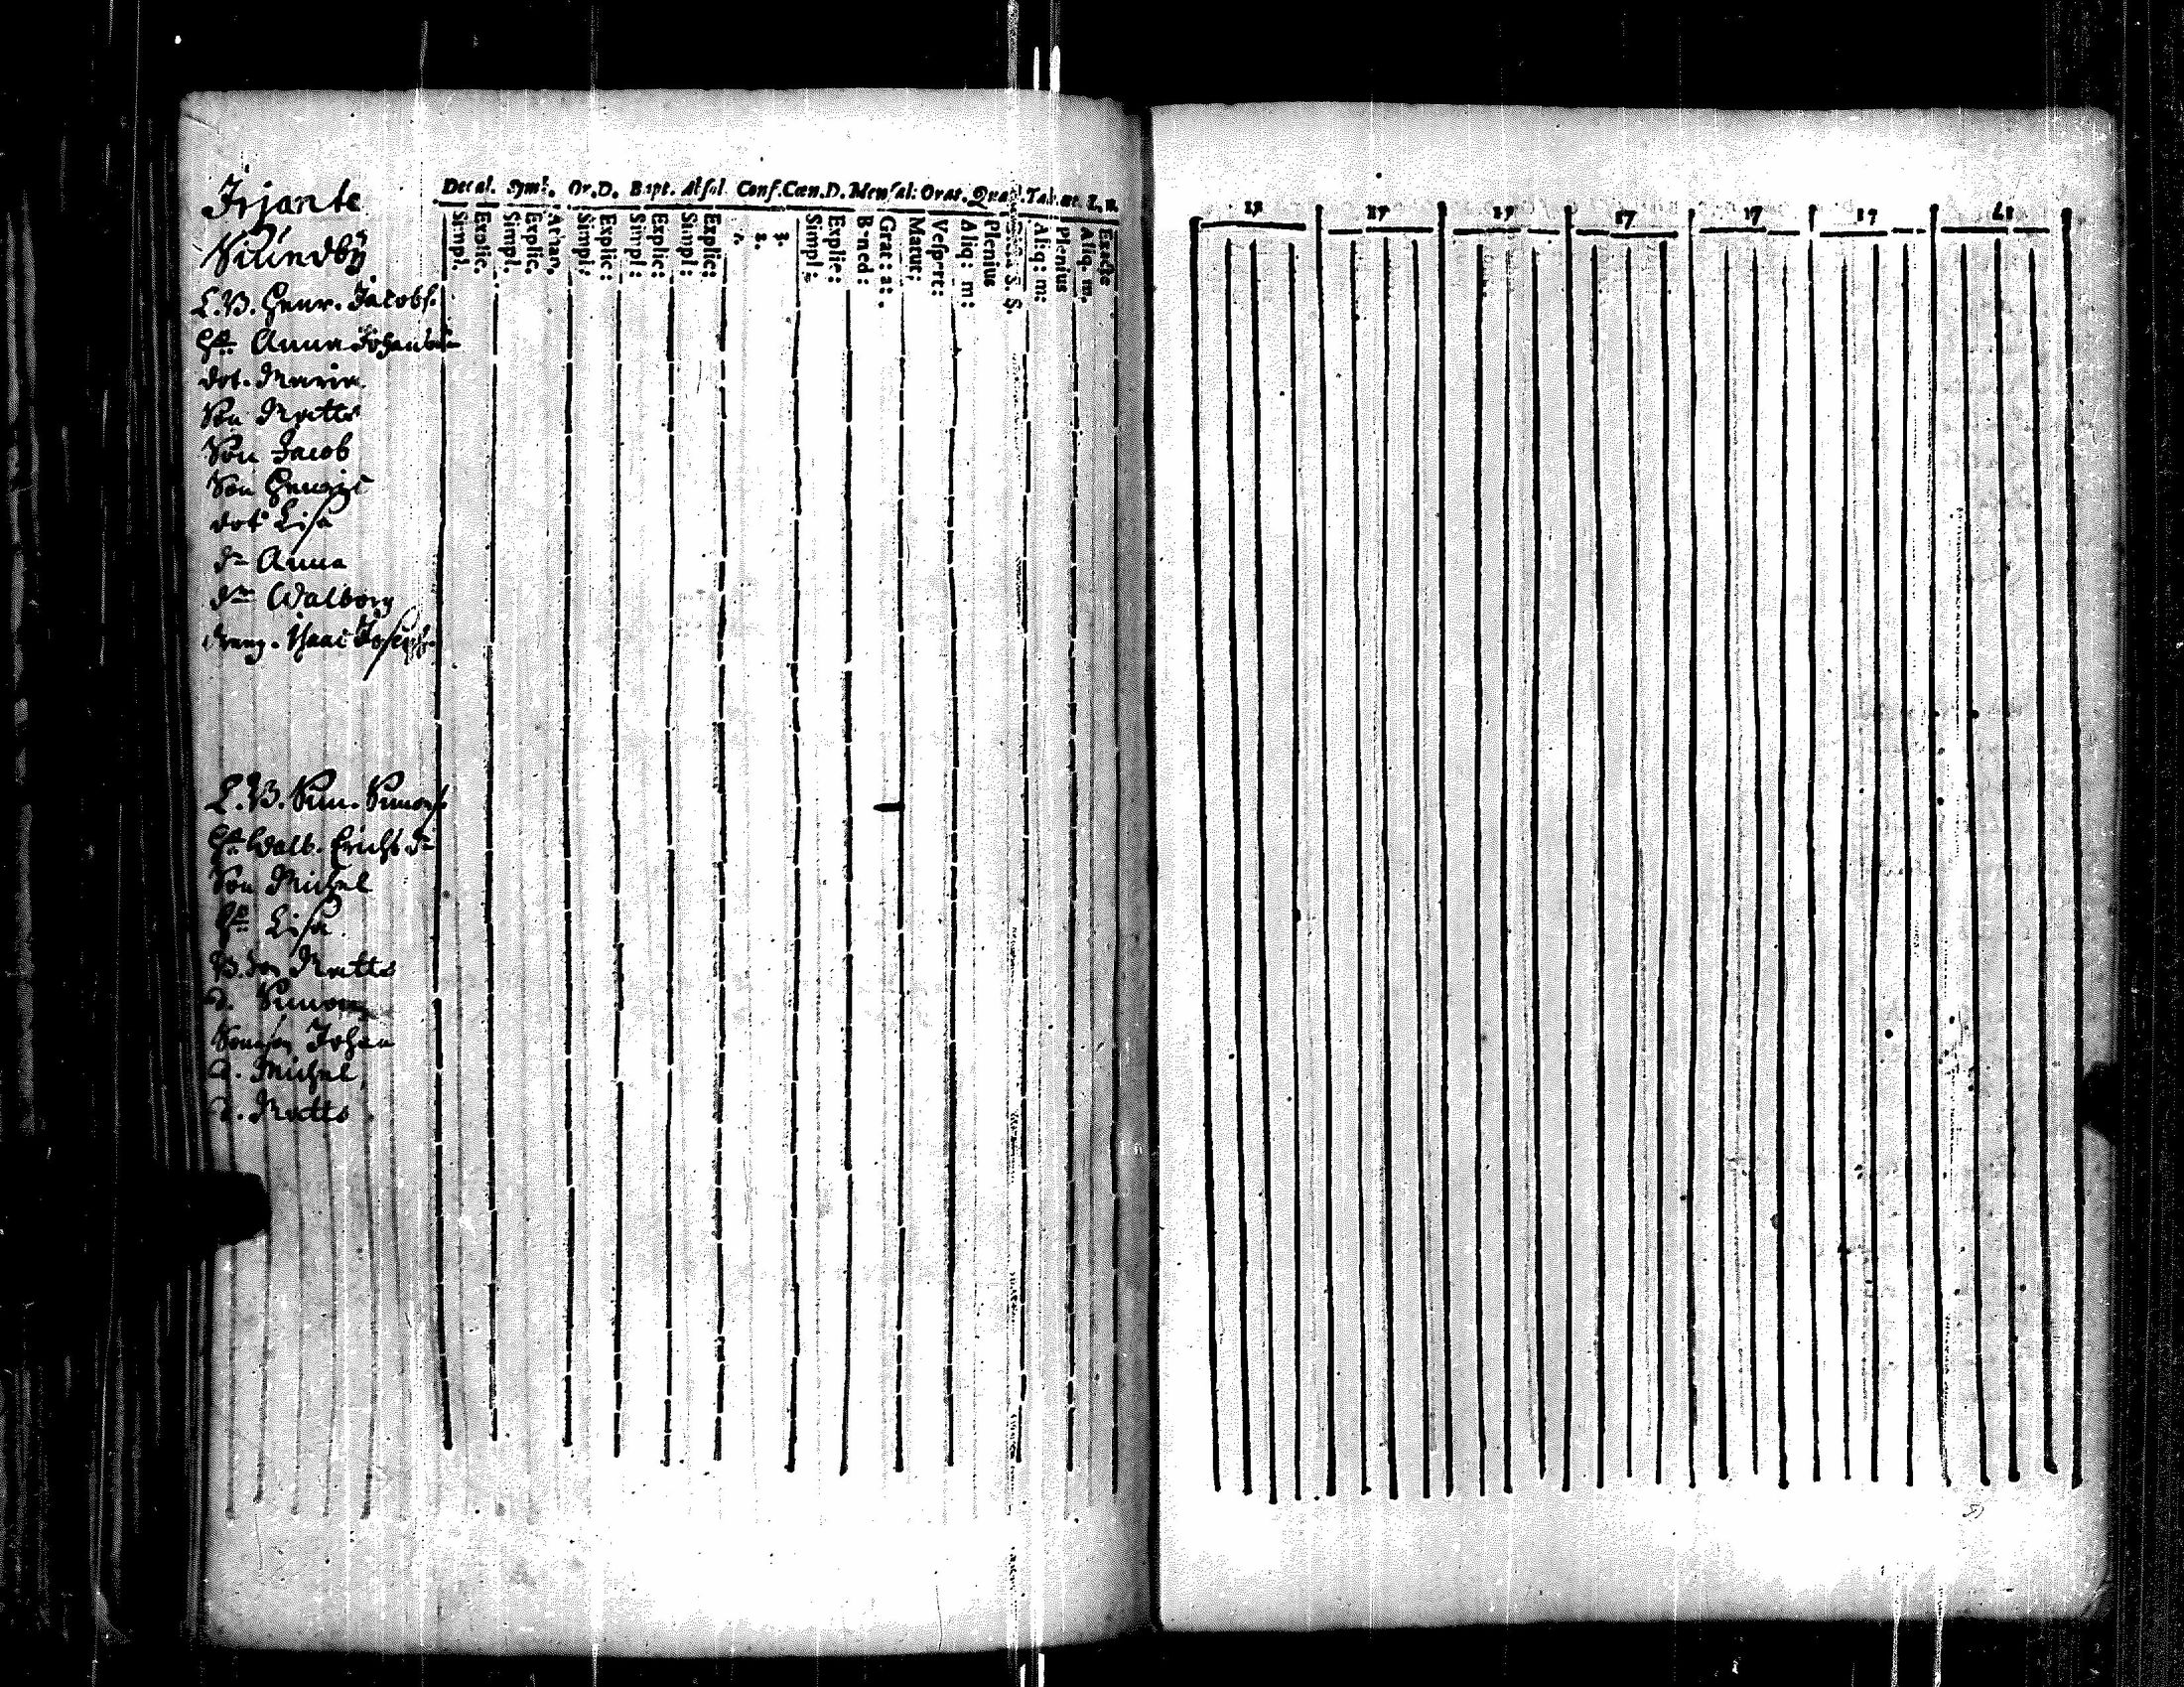 Irjante
Sunnby
Decal. Symb. Or.D. Bapt. Absol. Conf. Cœn.D. Mensal: Orat. Quæst. Tab.
Simpl. Explic. Simpl. Explic. Athan. Simpl: Explic: Simpl: Explic: Simpl: Explic: 1. 2. 3. Simpl: Explic: Bened: Grat: a: Matut: Vespert: Aliq: m: Plenius S. S. Aliq: m: Plenius Aliq. m. Exacte
L.B. Henr. Jacobs.
h. Anna Johansd.
dot. Maria
Son Matts
Son Jacob
Son Henric
dot Lisa
dr Anna
dr Walborg
dreng. Isaac Joseps.
L.B. Sim. Simons.
h. Walb. Erichs dr
Son Michel
Lisa
Matts
d. Simon
Sonson Johan
d. Michel
d. Matts
17 17 17 17 17 17 17